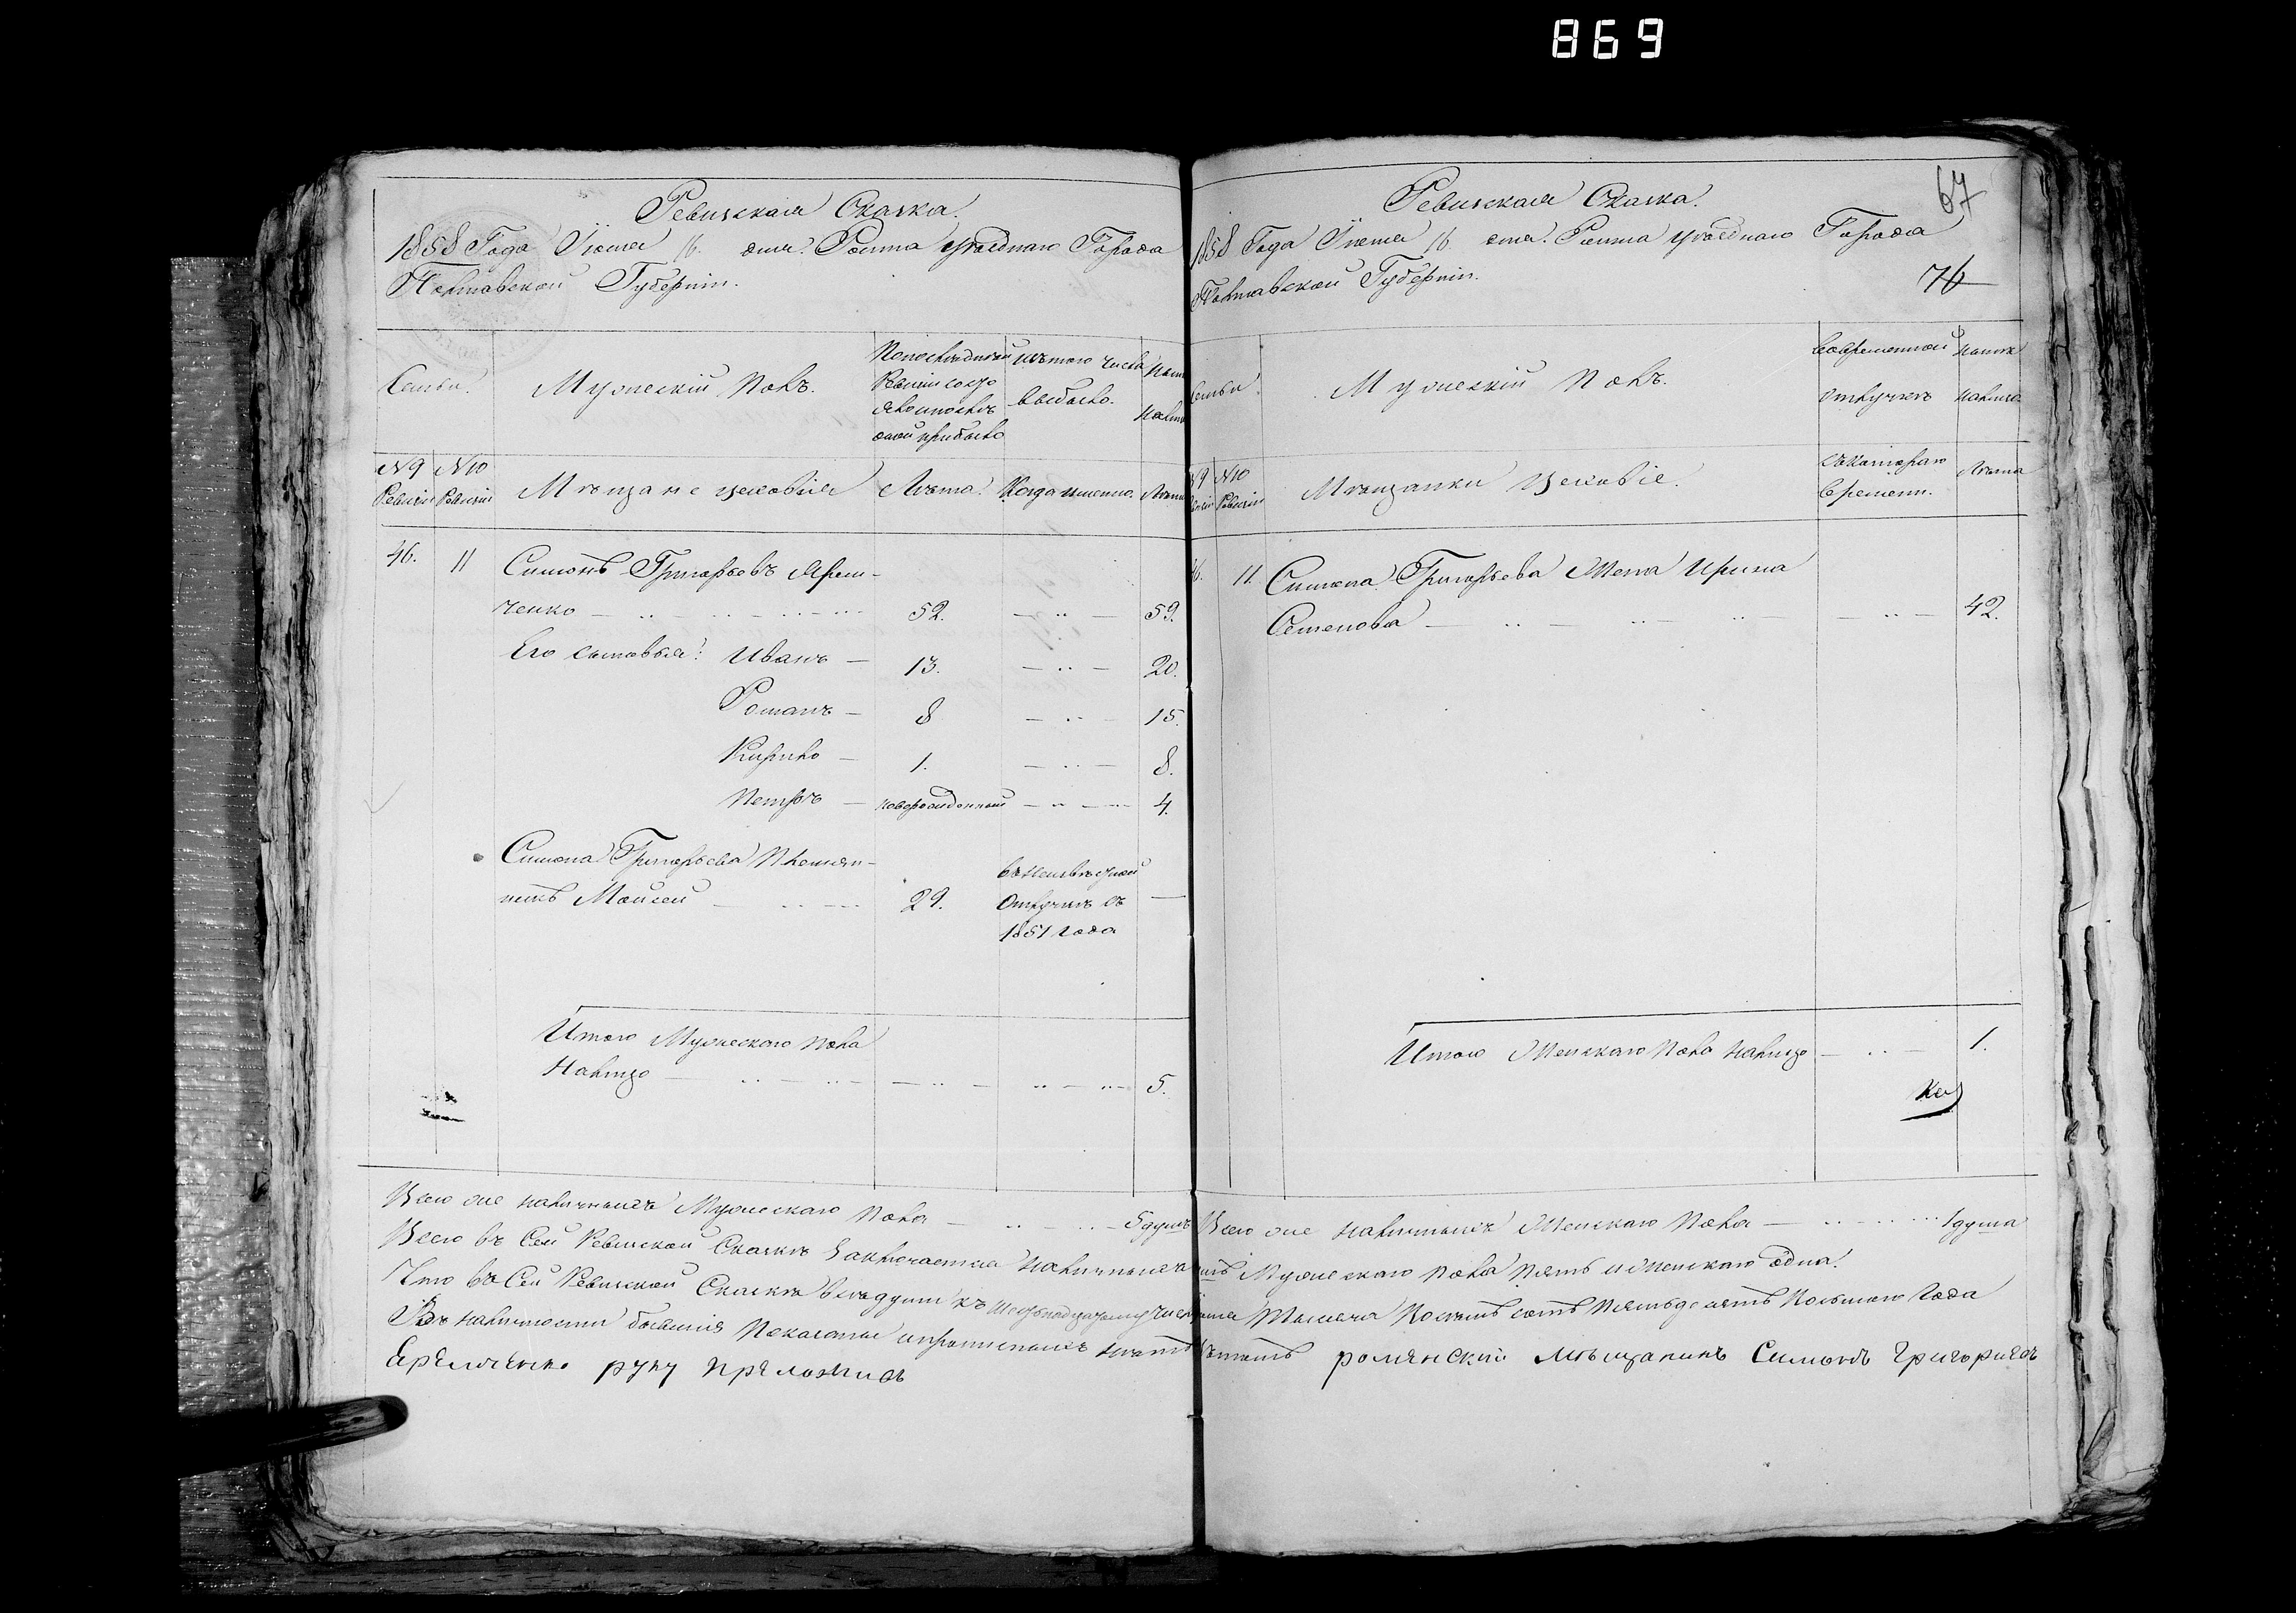 869
Ревизская Сказка.
1858 Года Іюня 16. дня. Ромна уѣзднаго Города
Полтавской Губерніи.
Семьи.
Мужескій Полъ.
По последней
Ревизіи состо
яло и послѣ
оной прибыло
Изъ того числа
выбыло.
Ныне
Налицо
№9
Ревизіи
№10
Ревизіи
Мѣщане
Лѣта.
Когда именно.
Лѣта
46.
11
Симонъ Григорьевъ Ярем-
ченко — 52. — 59.
Его сыновья: Иванъ — 13. — 20.
Романъ — 8 — 15.
Кирило — 1. — 8.
Петръ — новорожденный — 4.
Симона Григорьева племян-
никъ Моисей — 29. —
въ неизвѣстной
Отлучкѣ съ
1851 года
Итого Мужескаго пола
Налицо — 5.
Всего же наличныхъ Мужескаго пола — 5 душъ
67
76
Ревизская Сказка.
1858 Года Іюня 16. дня. Ромна уѣзднаго Города
Полтавской Губерніи.
Семьи
Мужескій Полъ.
Во временной
отлучкѣ
Ныне
налицо
№9
№10
Ревизіи
Мѣщанки
съ котораго
времени.
Лѣта
46.
11.
Симона Григорьева Жена Ирина
Семенова — 42.
Итого Женскаго пола налицо — 1.
Всего же наличныхъ Женскаго пола — 1 душа
Всего въ Сей Ревизской Сказкѣ Заключается наличныхъ Мужескаго пола пять и Женскаго одна.
Что въ Сей Ревизской Сказкѣ все души къ шестнадцатому числу Іюня Тысяча Восемь сотъ пятьдесятъ восьмого Года
Въ наличности бывшія показаны и прописныхъ нѣтъ въ томъ роменский мѣщанинъ Симонъ Григоригов
Яремченко руку приложилъ